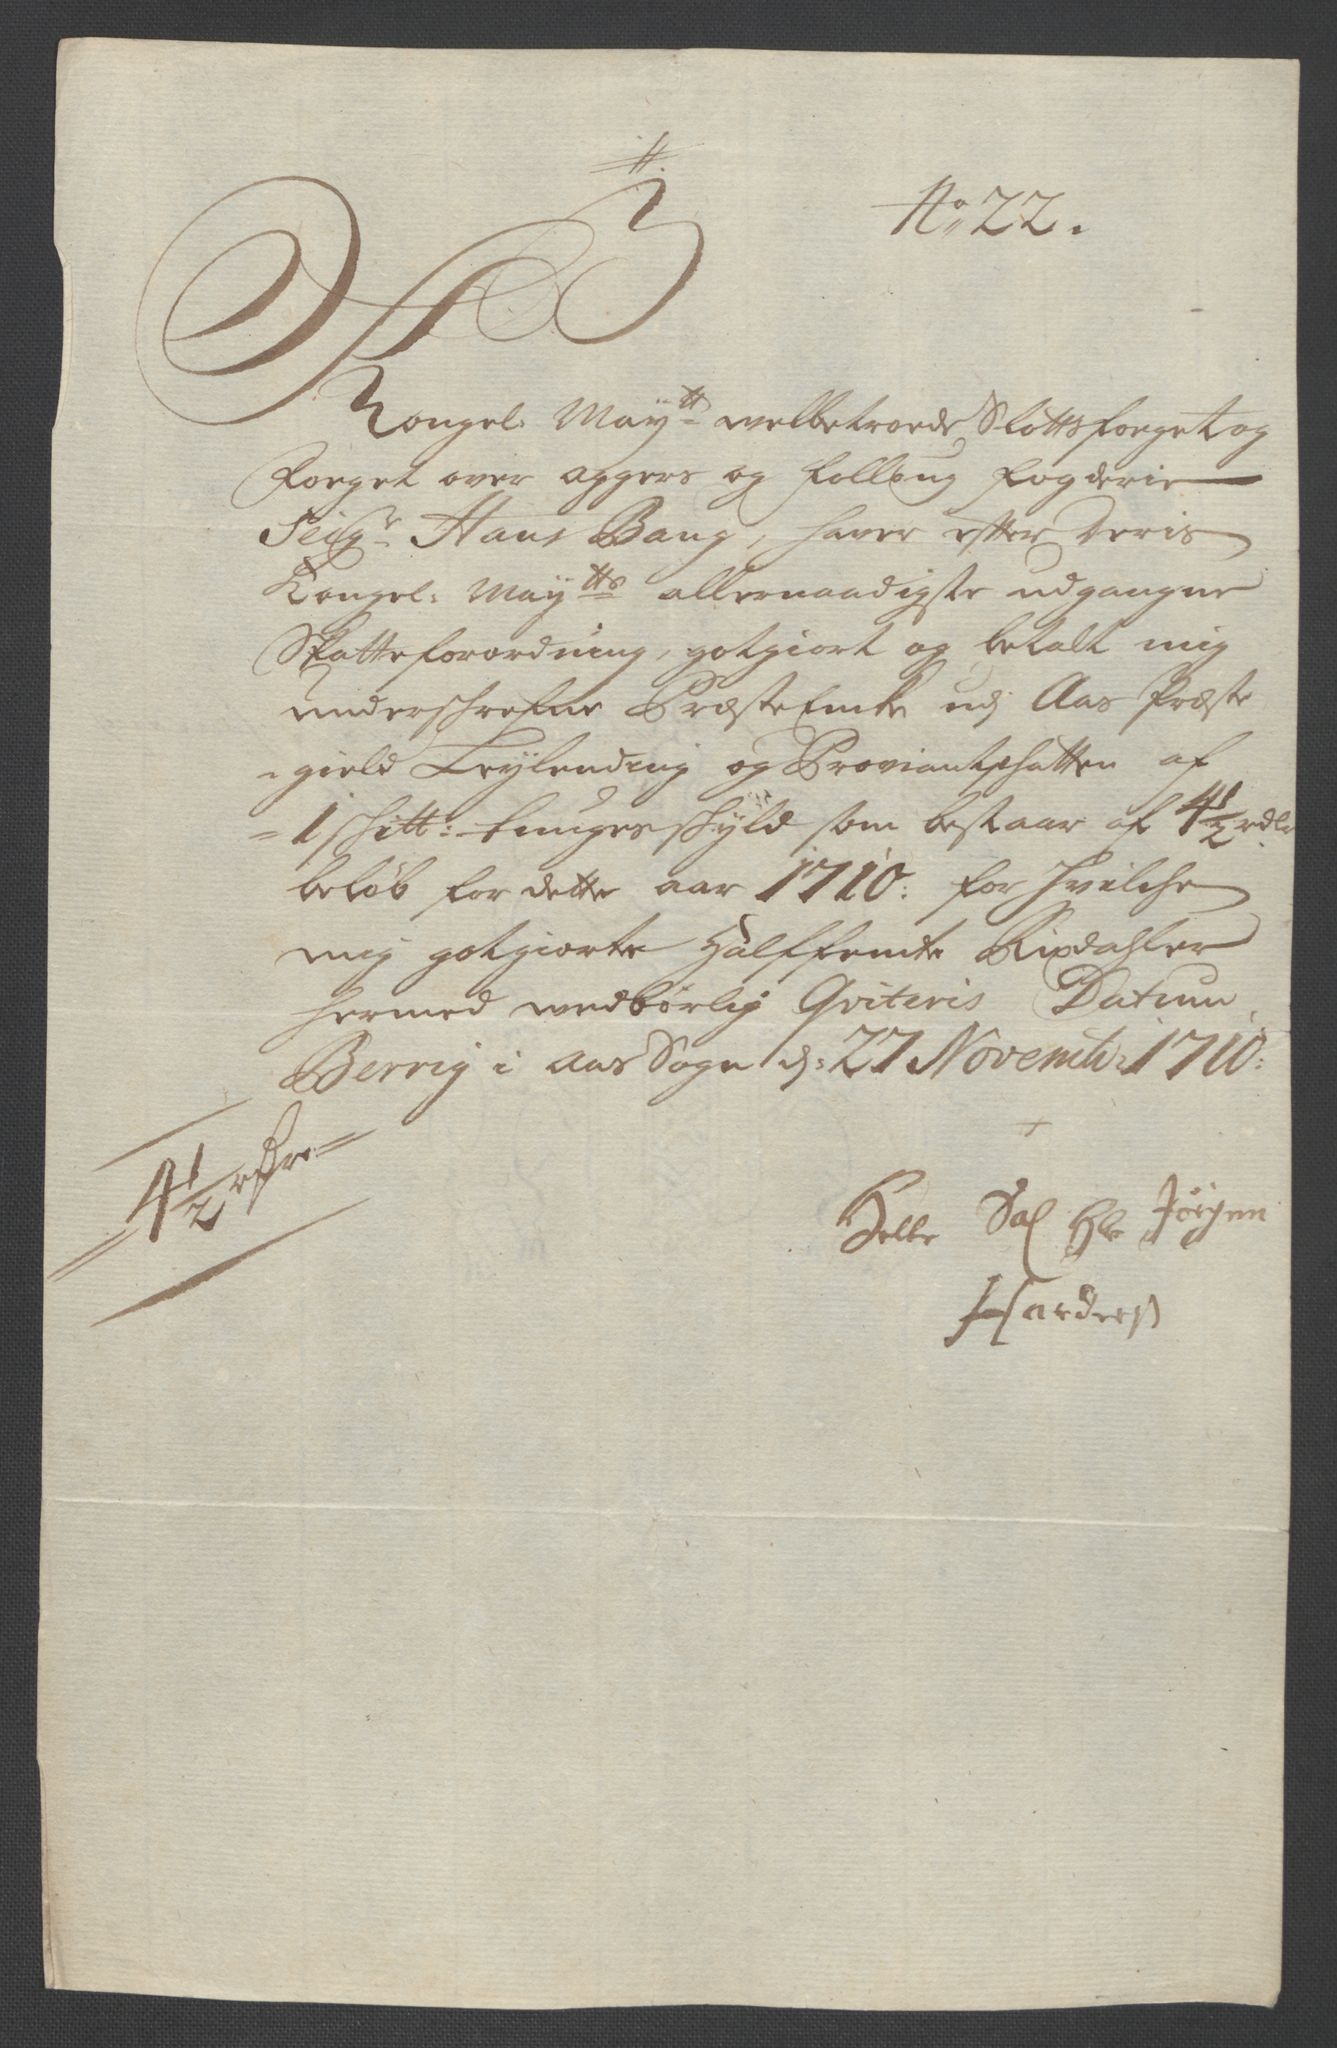 No 22.
Kongel: May.tt welbetroede Slottsfoeget og
Foeget over Aggers og Folloug fogderie
Seigr. Hans Bang, hafver efter Deris
Kongel: May.tts allernaadigste udgangne
Skatteforordning, gotgiort og betalt mig
underschrefne Præste Encke udj Aas Præste
gield Leylending og Proviantschatten af
1 schitt: tunges schyld som bestaar af 4½ rdlr
beløb for dette aar 1710: for hvilche
mig gotgiorte Halffemte Rixdahler
hermed wedbørlig Qviteris Datum
Berrig i Aas Sogn d: 27 Novemb: 1710:
4½ rdr
Helle Sal Hr Jørgen
Harders